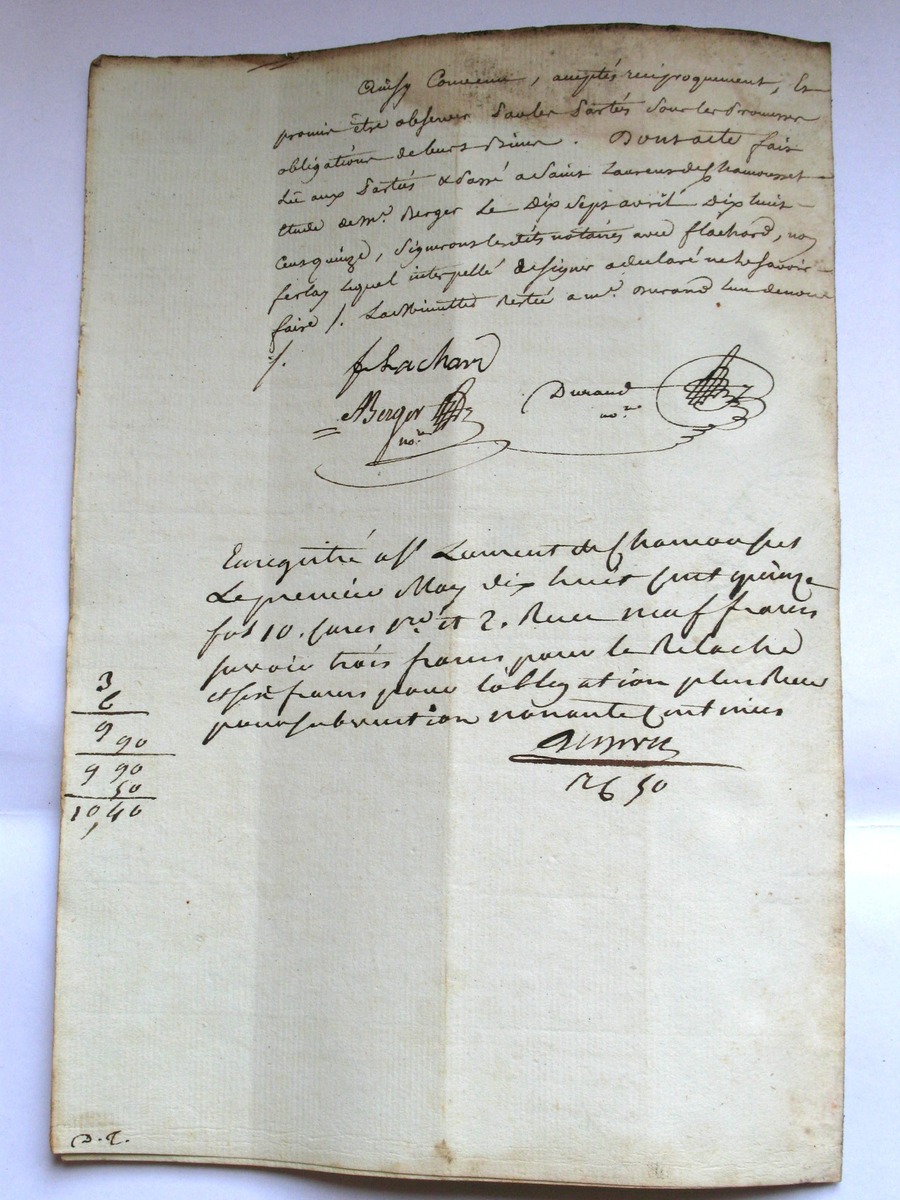 Ainsy convenu, acceptés réciproquement, et
promis être observé par les partés sous les promesses
obligations de leurs biens. Dont acte fait
Lû aux partés & passé a Saint Laurent de Chamousset
étude de me. Berger le dix sept avril dix huit
cent quinze, signerons lesdits notaires avec flachard, non
ferlay lequel interpellé de signer a déclaré ne le savoir
faire /. La Minutte restée a me. Durand l'un de nous
/.
flachard
Berger
nore
Durand
nore
Enregistré a St Laurent de Chamousset
Le premier May dix huit cent quinze
fos 10. cases 1re et 2. Recu neuf francs
savoir trois francs pour le Relaché
et six francs pour l'obligation plus Recu
pour subvention nonante centimes
26 50
3
6
9
90
9 90
50
10,40
D.T.